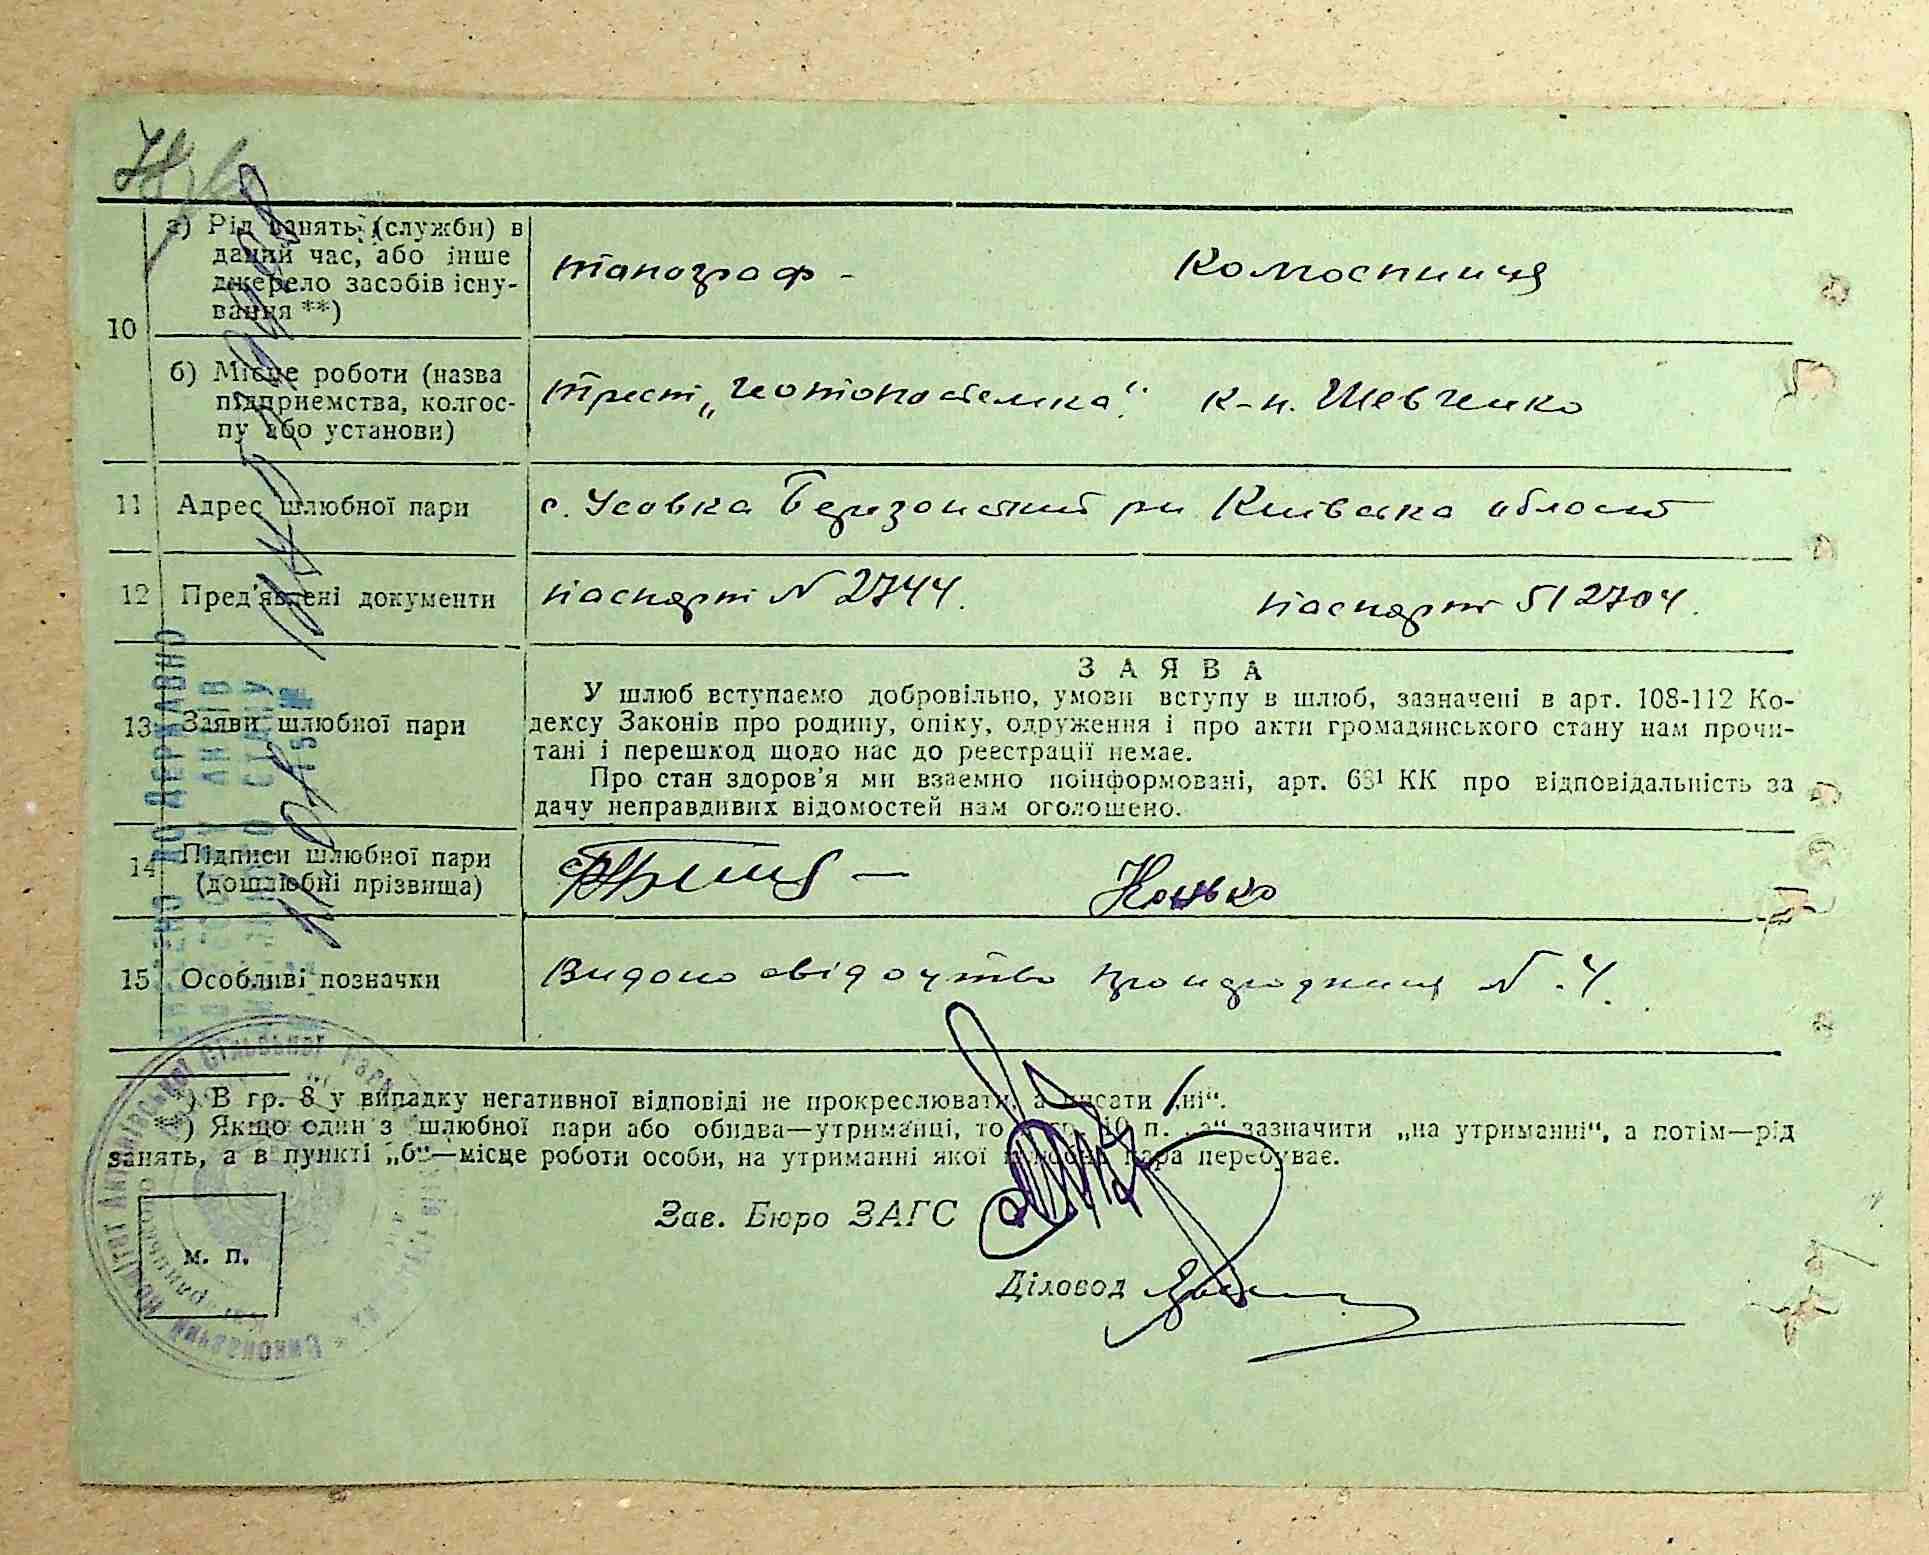 а) Рід занять (служби) в
даний час, або інше
джерело засобів існу-
вання **)
топограф - колгоспниця
10
б) Місце роботи (назва
підприємства, колгос-
пу або установи)
трест „ к-п. Шевченко
11 Адрес шлюбної пари
с. Усовка Березанский рн Київська область
12 Пред'явлені документи
паспорт № 2744. паспорт 512704.
ЗАЯВА
13 Заяви шлюбної пари
У шлюб вступаємо добровільно, умови вступу в шлюб, зазначені в арт. 108-112 Ко-
дексу Законів про родину, опіку, одруження і про акти громадянського стану нам прочи-
тані і перешкод щодо нас до реєстрації немає.
Про стан здоров'я ми взаємно поінформовані, арт. 68¹ КК про відповідальність за
дачу неправдивих відомостей нам оголошено.
14 Підписи шлюбної пари
(дошлюбні прізвища)
Конько
15 Особливі позначки
Видано свідоцтво № 4.
*) В гр. 8 у випадку негативної відповіді не прокреслювати, а писати „ні“.
**) Якщо один з шлюбної пари або обидва—утриманці, то в гр. 10 п. „а“ зазначити „на утриманні“, а потім—рід
занять, а в пункті „б“—місце роботи особи, на утриманні якої шлюбна пара перебуває.
Зав. Бюро ЗАГС
Діловод
м. п.